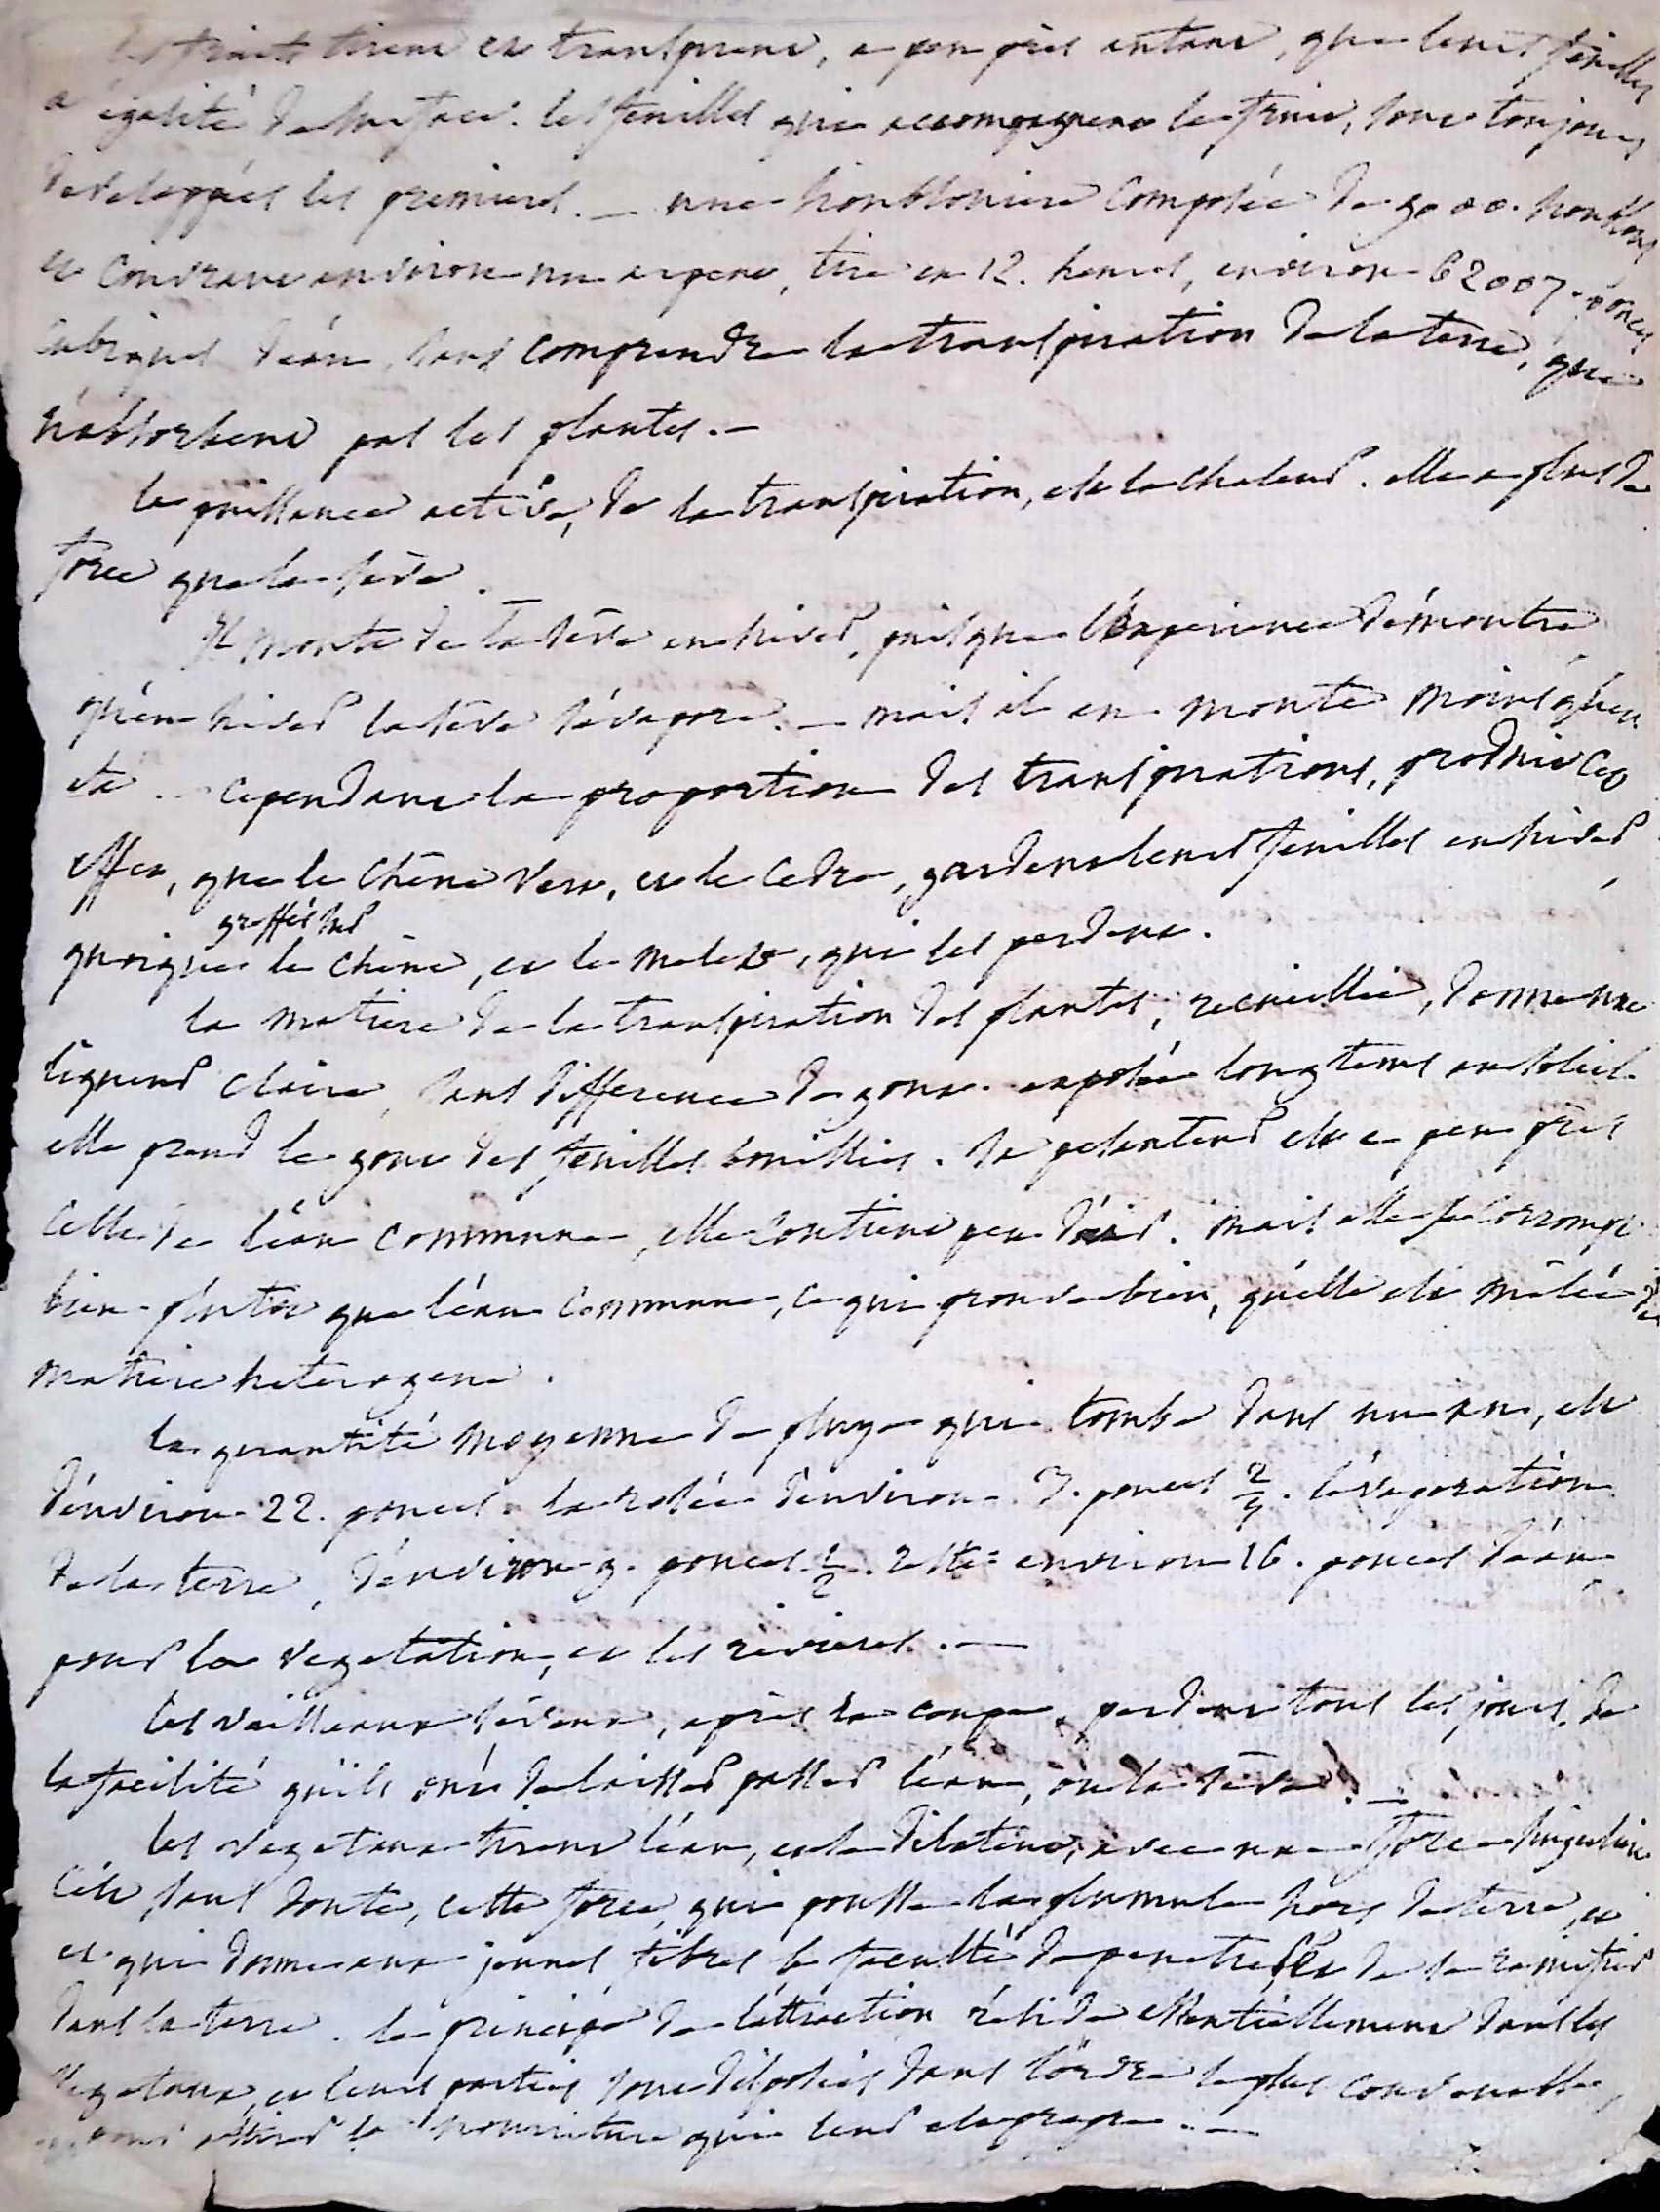 les fruits tirent et transpirent, a peu près autant, que leurs feuilles
a égalité de surface. les feuilles qui accompagnent le fruit, sont toujours
developpées les premieres. — une houbloniere composée de 9000. houblons
et couvrant environ un arpent, tire en 12. heures, environ 62007. pouces
cubiques d'eau, sans comprendre la transpiration de la terre, que
n'absorbent pas les plantes. —
la puissance active, de la transpiration, est la chaleur. elle a plus de
force que la sève.
Il monte de la sève en hiver, puisque l'expérience démontre
qu'en hiver la sève s'évapore. — mais il en monte moins qu'en
été. — cependant la proportion des transpirations, produit cet
effet, que le chêne vert, et le cedre, gardent leurs feuilles en hiver
greffés sur
quoique le chêne, et le meleze, qui les perdent.
la matiere de la transpiration des plantes, recueillie, donne une
liqueur claire, sans difference de gout. exposée longtems au soleil
elle prend le gout des feuilles bouillies. sa pesanteur est a peu près
celle de l'eau commune, elle contient peu d'air. mais elle se corrompt
bien plutot que l'eau commune, ce qui prouve bien, qu'elle est mêlée de
matiere heterogene.
la quantité moyenne de pluye qui tombe dans un an, est
d'environ 22. pouces. la rosée d'environ 3. pouces 2/4. l'évaporation
de la terre, d'environ 9. pouces 1/2. reste environ 16. pouces d'eau
pour la vegetation, et les rivieres. —
les vaisseaux séveux, après la coupe, perdent tous les jours, de
la facilité qu'ils ont de laisser passer l'eau, ou la sève. —
les vegetaux tirent l'eau, et la dilatent, avec une force singuliere
c'est sans doute, cette force, qui pousse la plumule hors de terre, et
et qui donne aux jeunes fibres la faculté de penetrer et de se ramifier
dans la terre. le principe de l'attraction réside essentiellement dans les
vegetaux, et leurs parties sont disposées dans l'ordre le plus convenable,
pour attirer la nourriture qui leur est propre. —